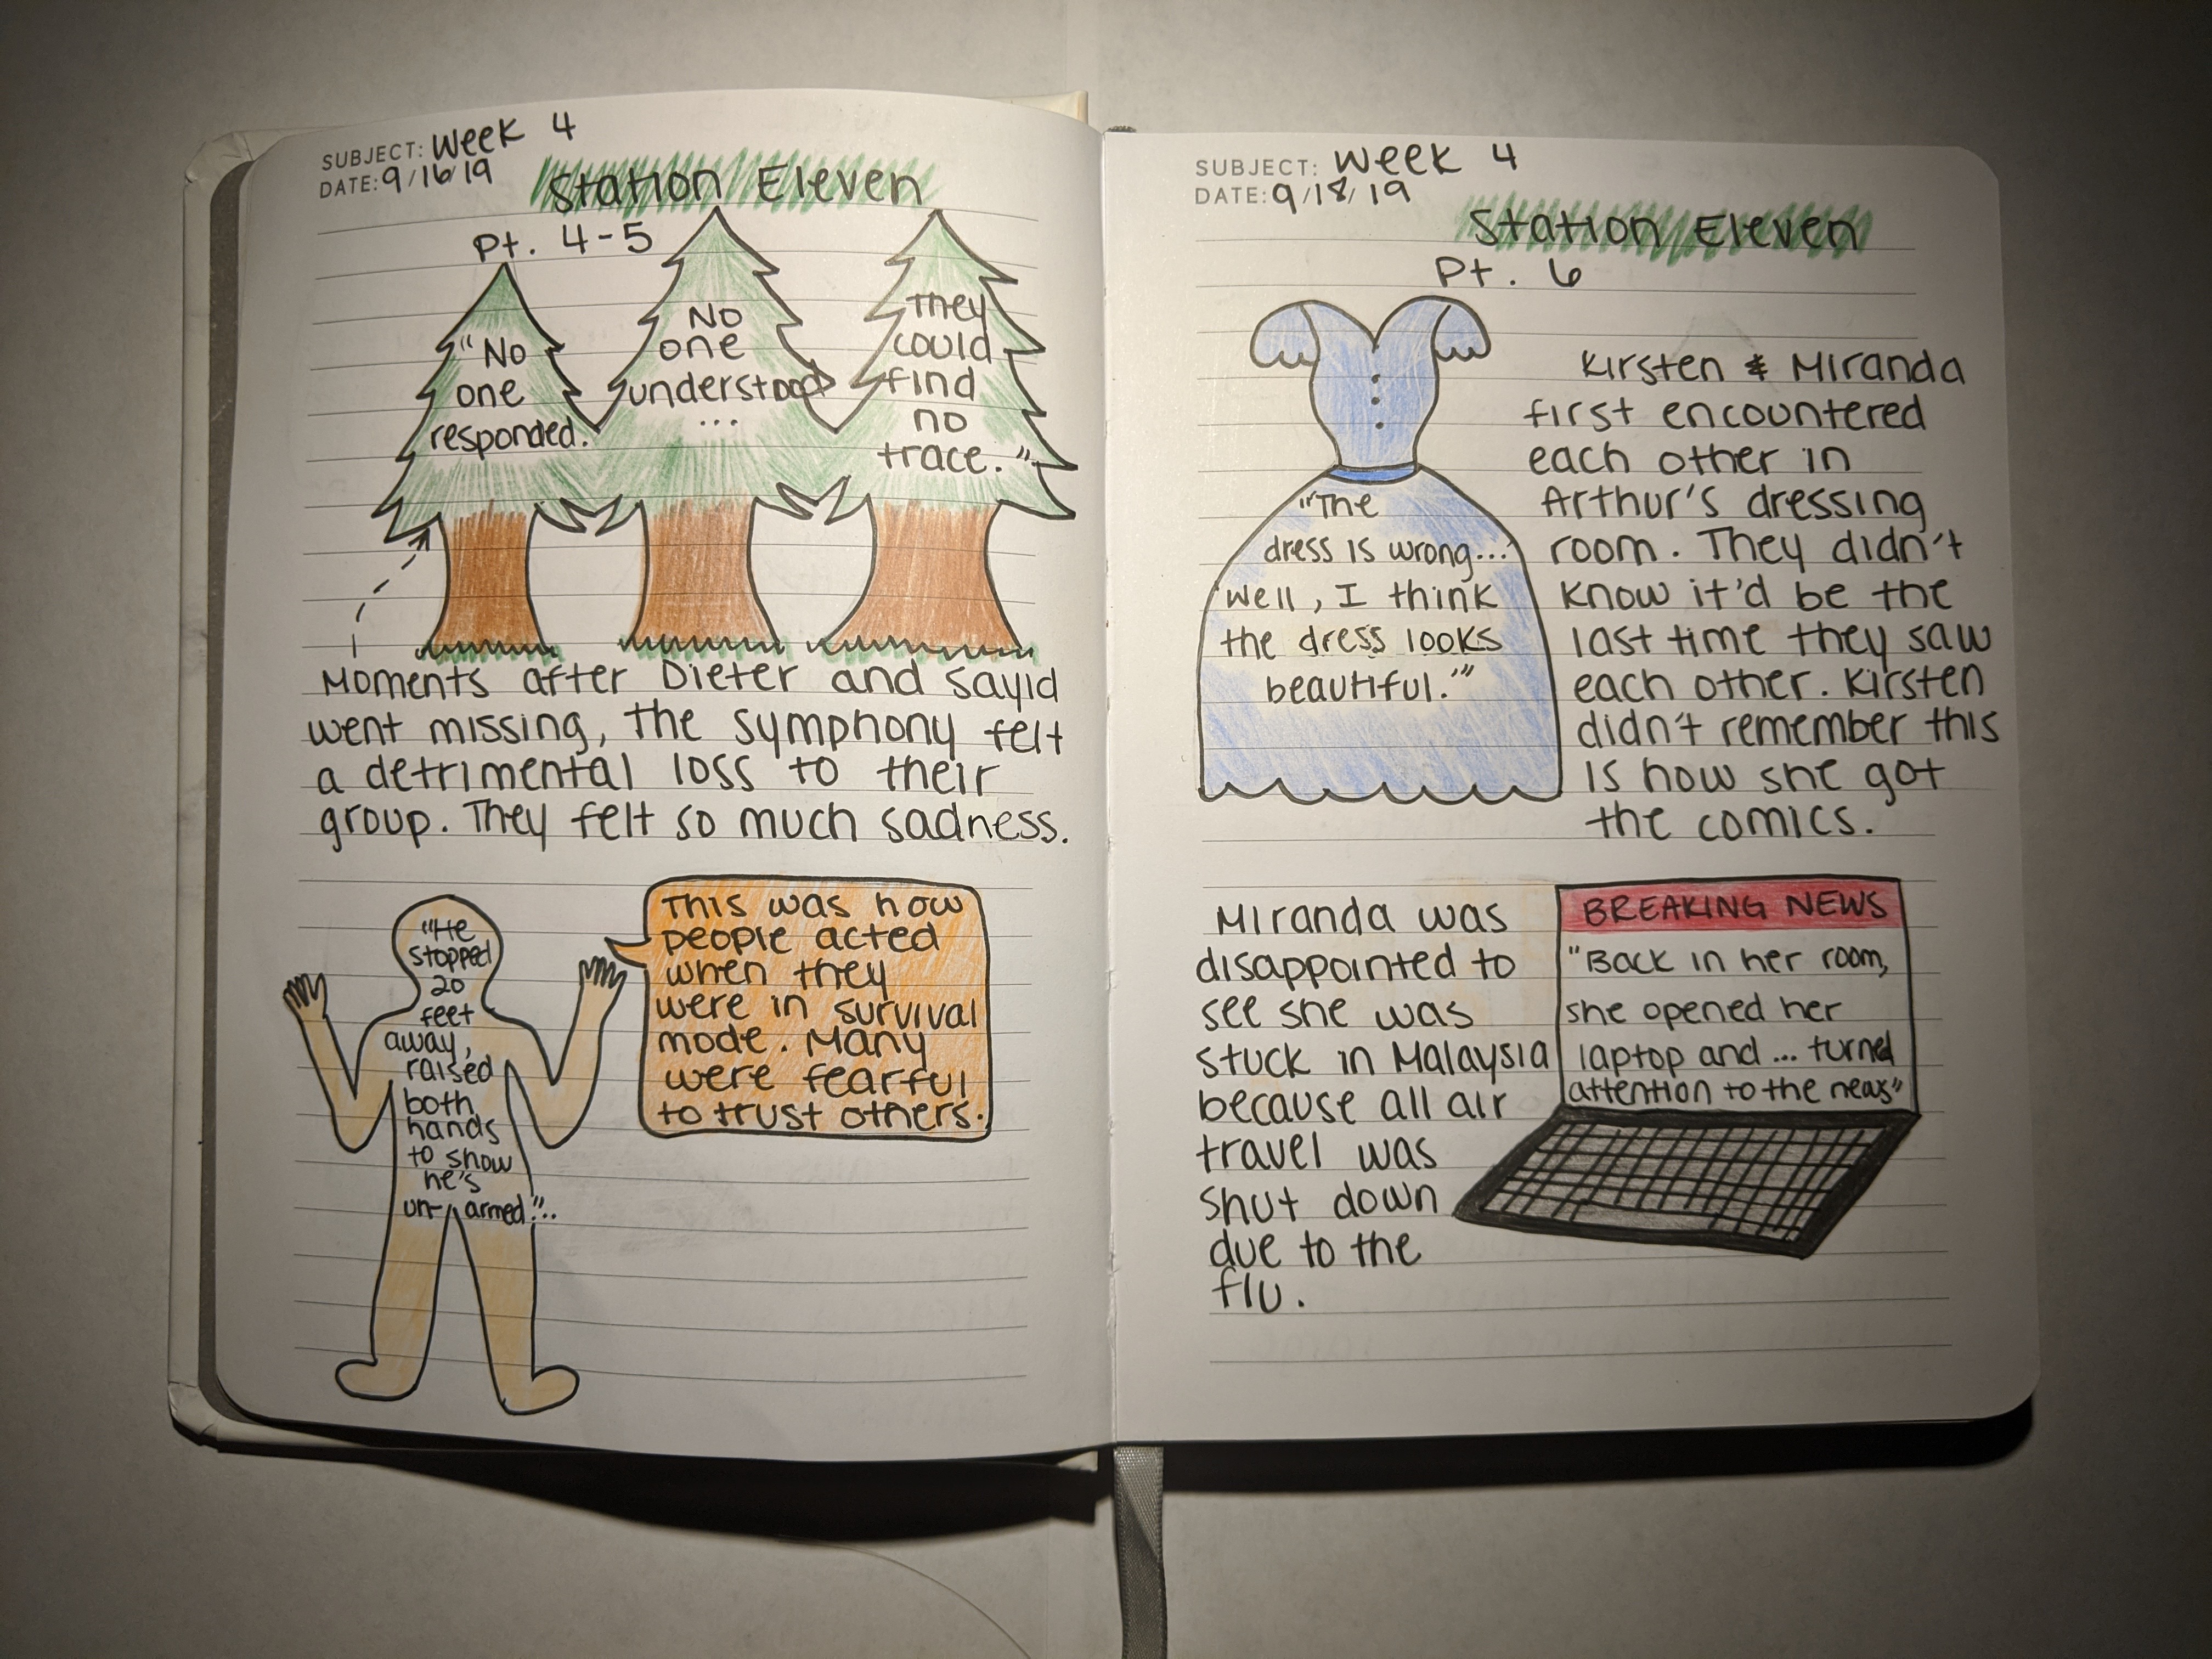 SUBJECT: Week 4
DATE: 9/16/19
Station Eleven
Pt. 4-5
"No
one
responded.
No
one
understood
...
They
could
find
no
trace."
Moments after Dieter and Sayid
went missing, the symphony felt
a detrimental loss to their
group. They felt so much sadness.
"He
stopped
20
feet
away,
raised
both
hands
to show
he's
un-armed"...
This was how
people acted
when they
were in survival
mode. Many
were fearful
to trust others.
SUBJECT: Week 4
DATE: 9/18/19
Station Eleven
Pt. 6
"'The
dress is wrong...'
'Well, I think
the dress looks
beautiful.'"
Kirsten & Miranda
first encountered
each other in
Arthur's dressing
room. They didn't
know it'd be the
last time they saw
each other. Kirsten
didn't remember this
is how she got
the comics.
Miranda was
disappointed to
see she was
stuck in Malaysia
because all air
travel was
shut down
due to the
flu.
BREAKING NEWS
"Back in her room,
she opened her
laptop and ... turned
attention to the news"